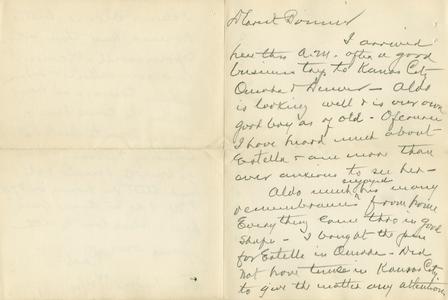 Dearest Bonnus
I arrived
here this A.M. after a good
business trip to Kansas City
Omaha & Denver - Aldo
is looking well & is our own
good boy as of old - Of course
I have heard much about
Estella & am more than
ever anxious to see her -
Aldo much enjoyed his many
remembrances from home
Everything came thro in good
shape - I bought the pin
for Estelle in Omaha - Did
not have time in Kansas City
to give the matter any attention